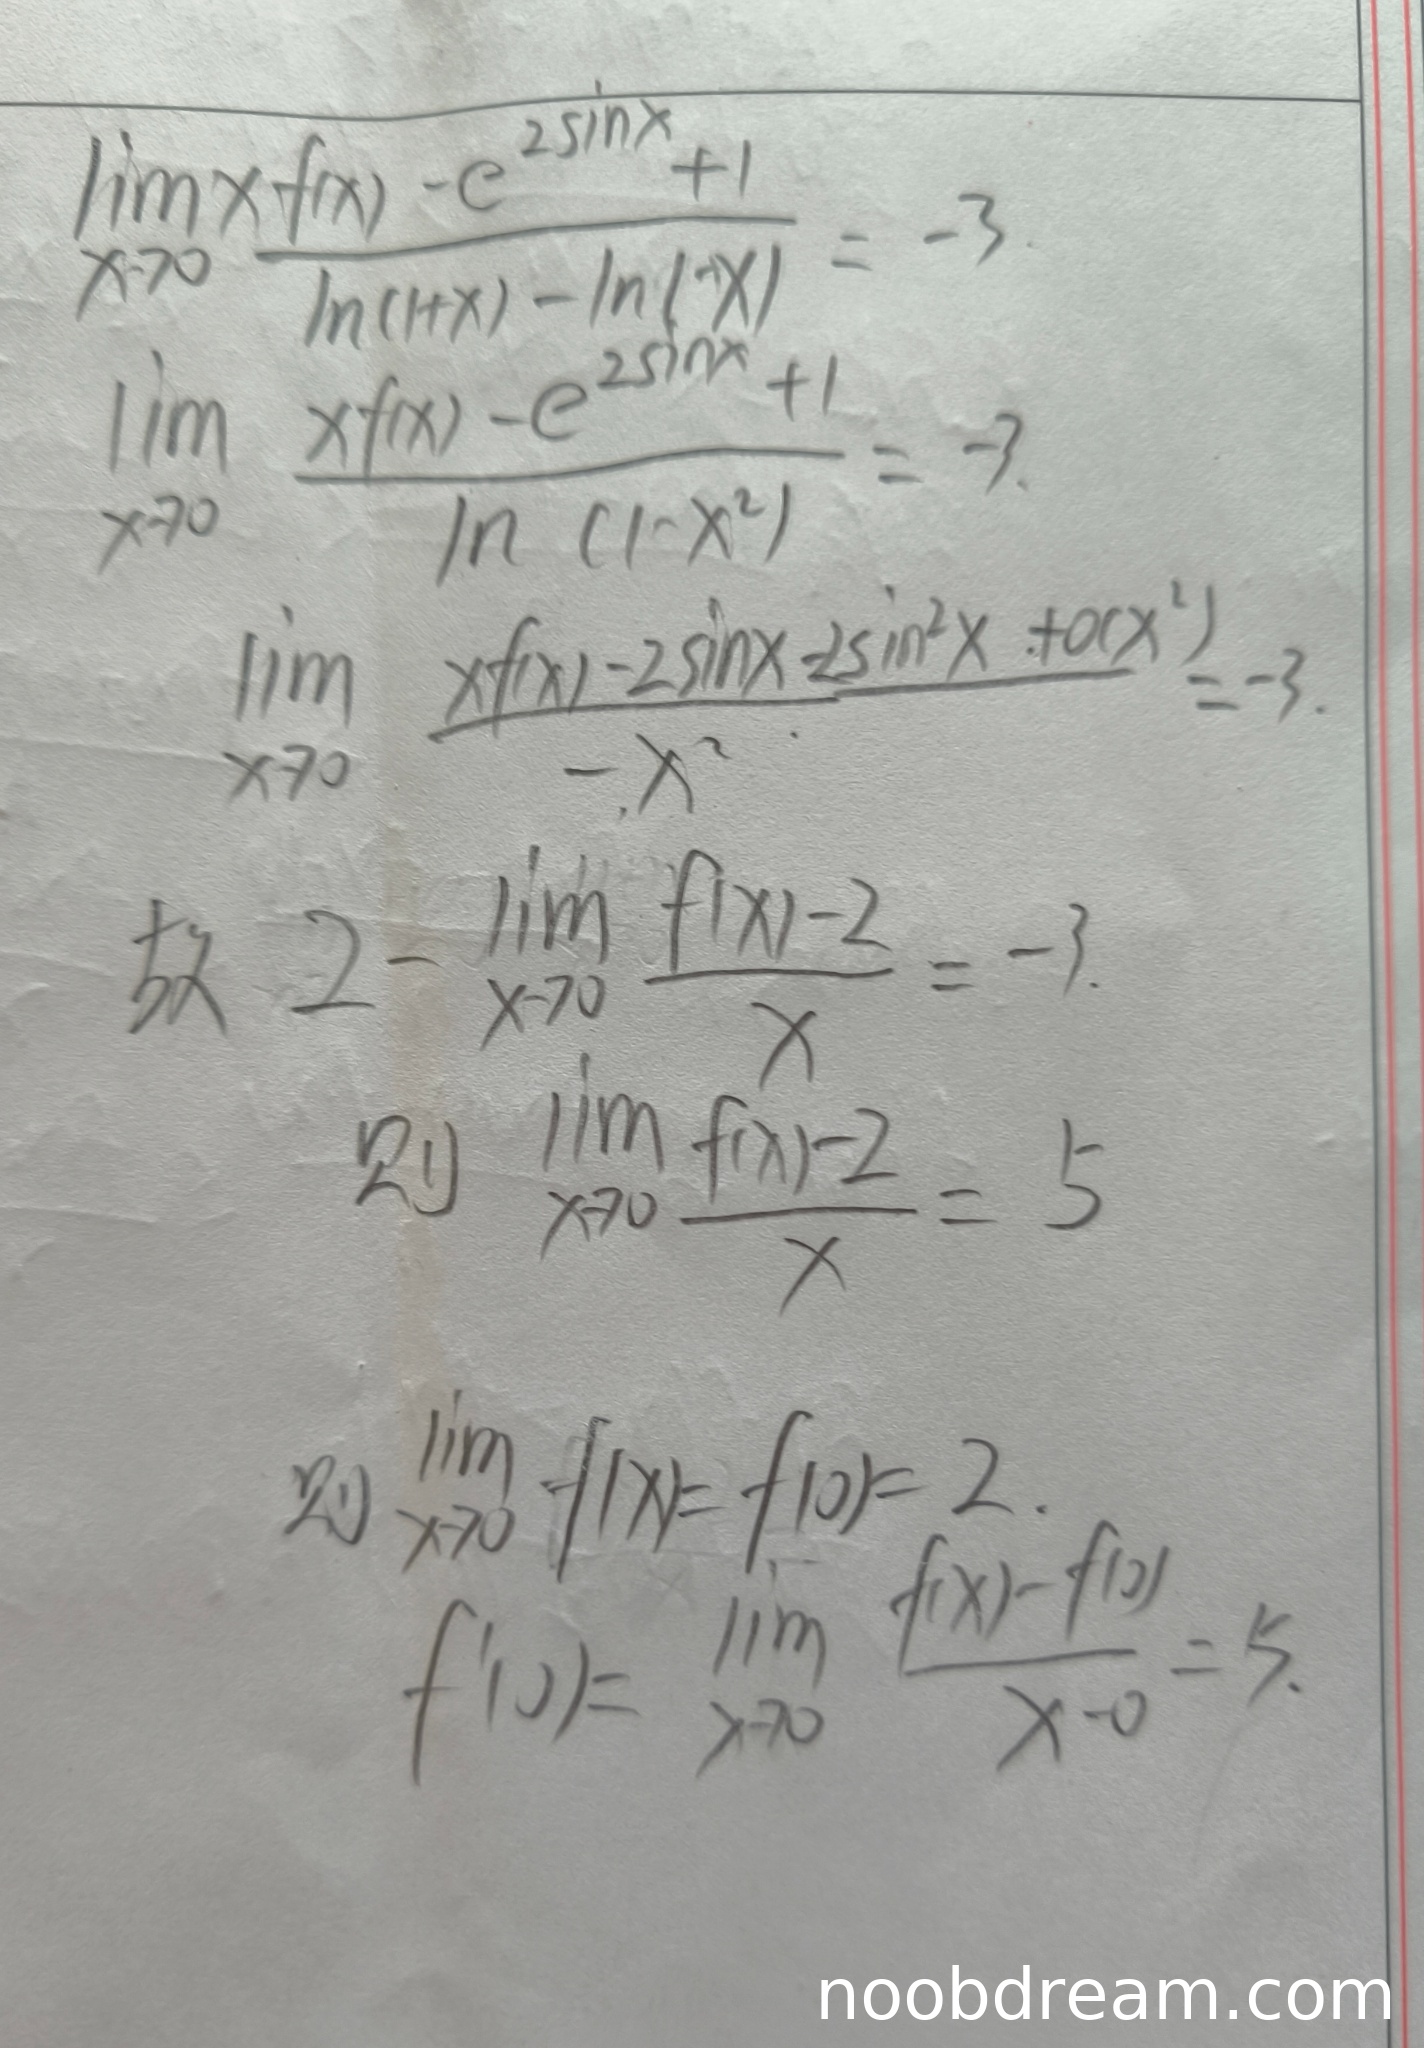 lim x→0 (xf(x) - e^{2sinx} + 1) / (ln(1+x) - ln(1-x)) = -3.
lim x→0 (xf(x) - e^{2sinx} + 1) / (ln (1-x²)) = -3.
lim x→0 (xf(x) - 2sinx - 2sin²x + o(x²)) / (-x²) = -3.
故 2 - lim x→0 (f(x) - 2) / x = -3.
则 lim x→0 (f(x) - 2) / x = 5
则 lim x→0 f(x) = f(0) = 2.
f'(0) = lim x→0 (f(x) - f(0)) / (x - 0) = 5.
noobdream.com